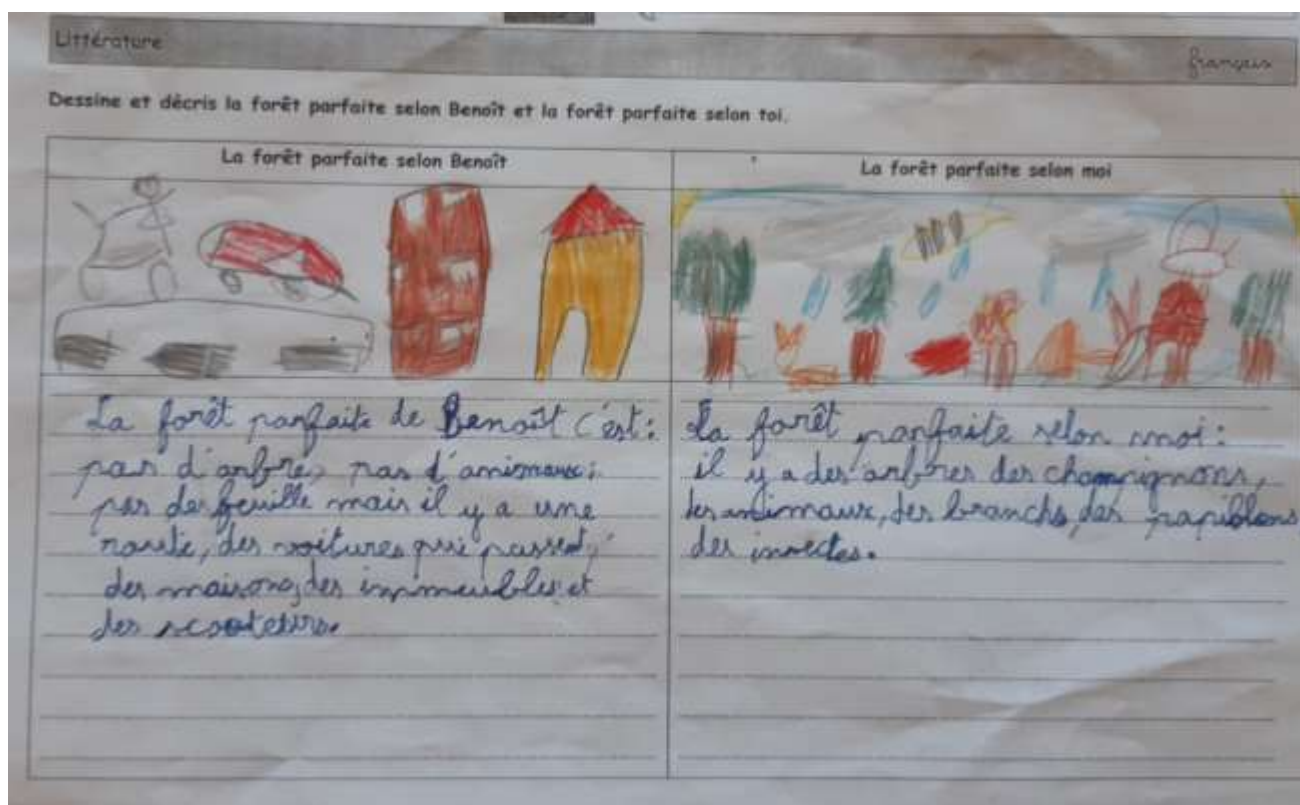 Littérature
français
Dessine et décris la forêt parfaite selon Benoît et la forêt parfaite selon toi.
La forêt parfaite selon Benoît
La forêt parfaite de Benoît c'est :
pas d'arbre, pas d'animaux,
pas de feuille mais il y a une
route, des voitures qui passent,
des maisons, des immeubles et
des scooteurs.
La forêt parfaite selon moi
La forêt parfaite selon moi :
il y a des arbres des champignons,
des animaux, des branchs, des papiblons
des insectes.